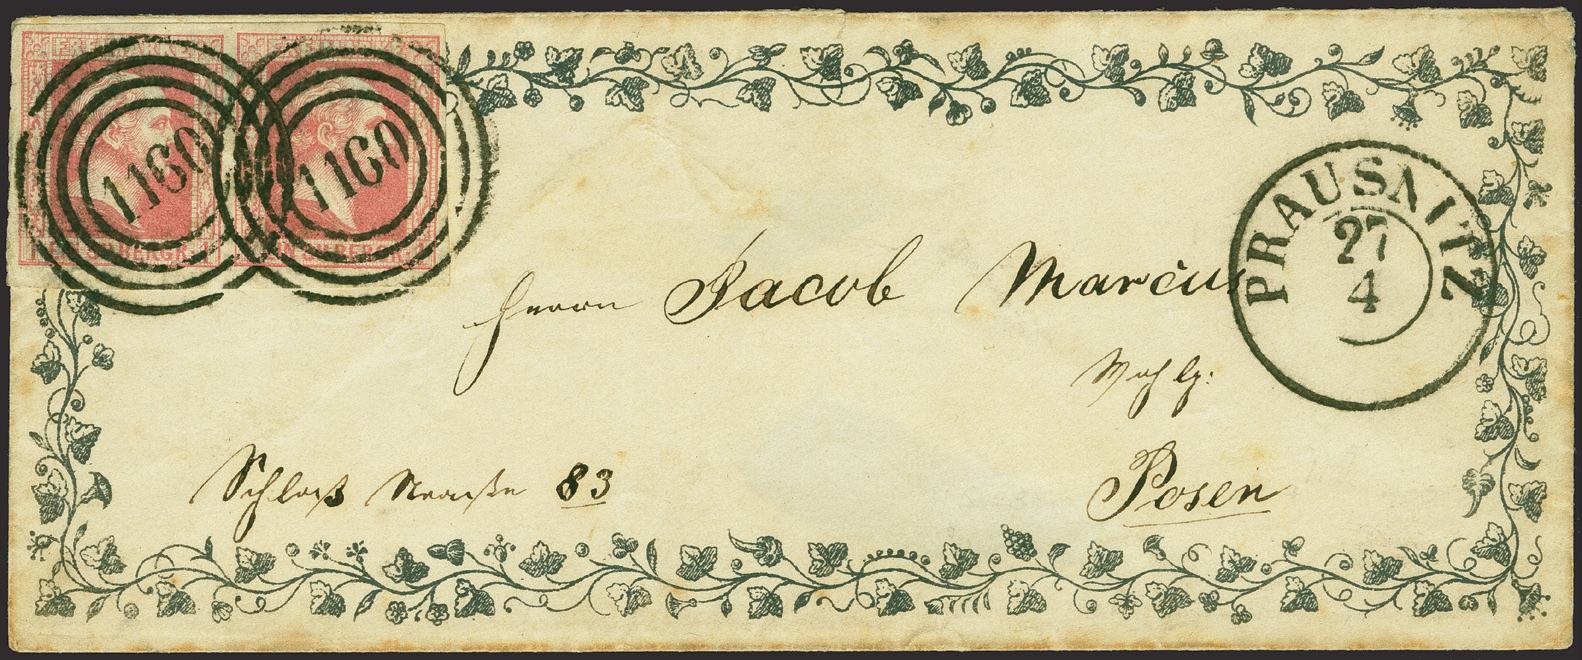 1160 1160
PRAUSNITZ
27
4
Herrn Jacob Marcus
Posen
Schloß Straße 83